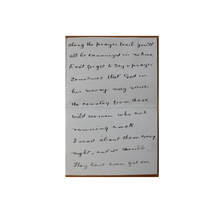 along the prayer trail. you'll
all be encouraged in nature
Don't forget to say a prayer
sometimes that God in
his mercy may
the country from these
wild women who are
running amok
I read about them every
night, and it's
They have even got on